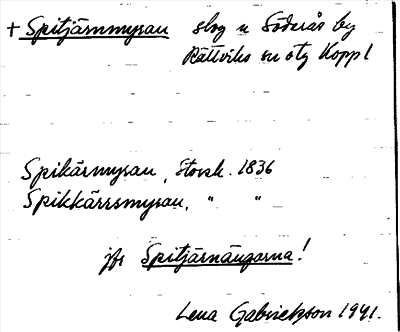 + Spitjärnmyran skog n Söderås by
Rättviks sn otg Koppl
Spikärmyran, Storsk. 1836
Spikkärrsmyran, " "
jfr Spitjärnängarna!
Lena Gabrielsson 1991.